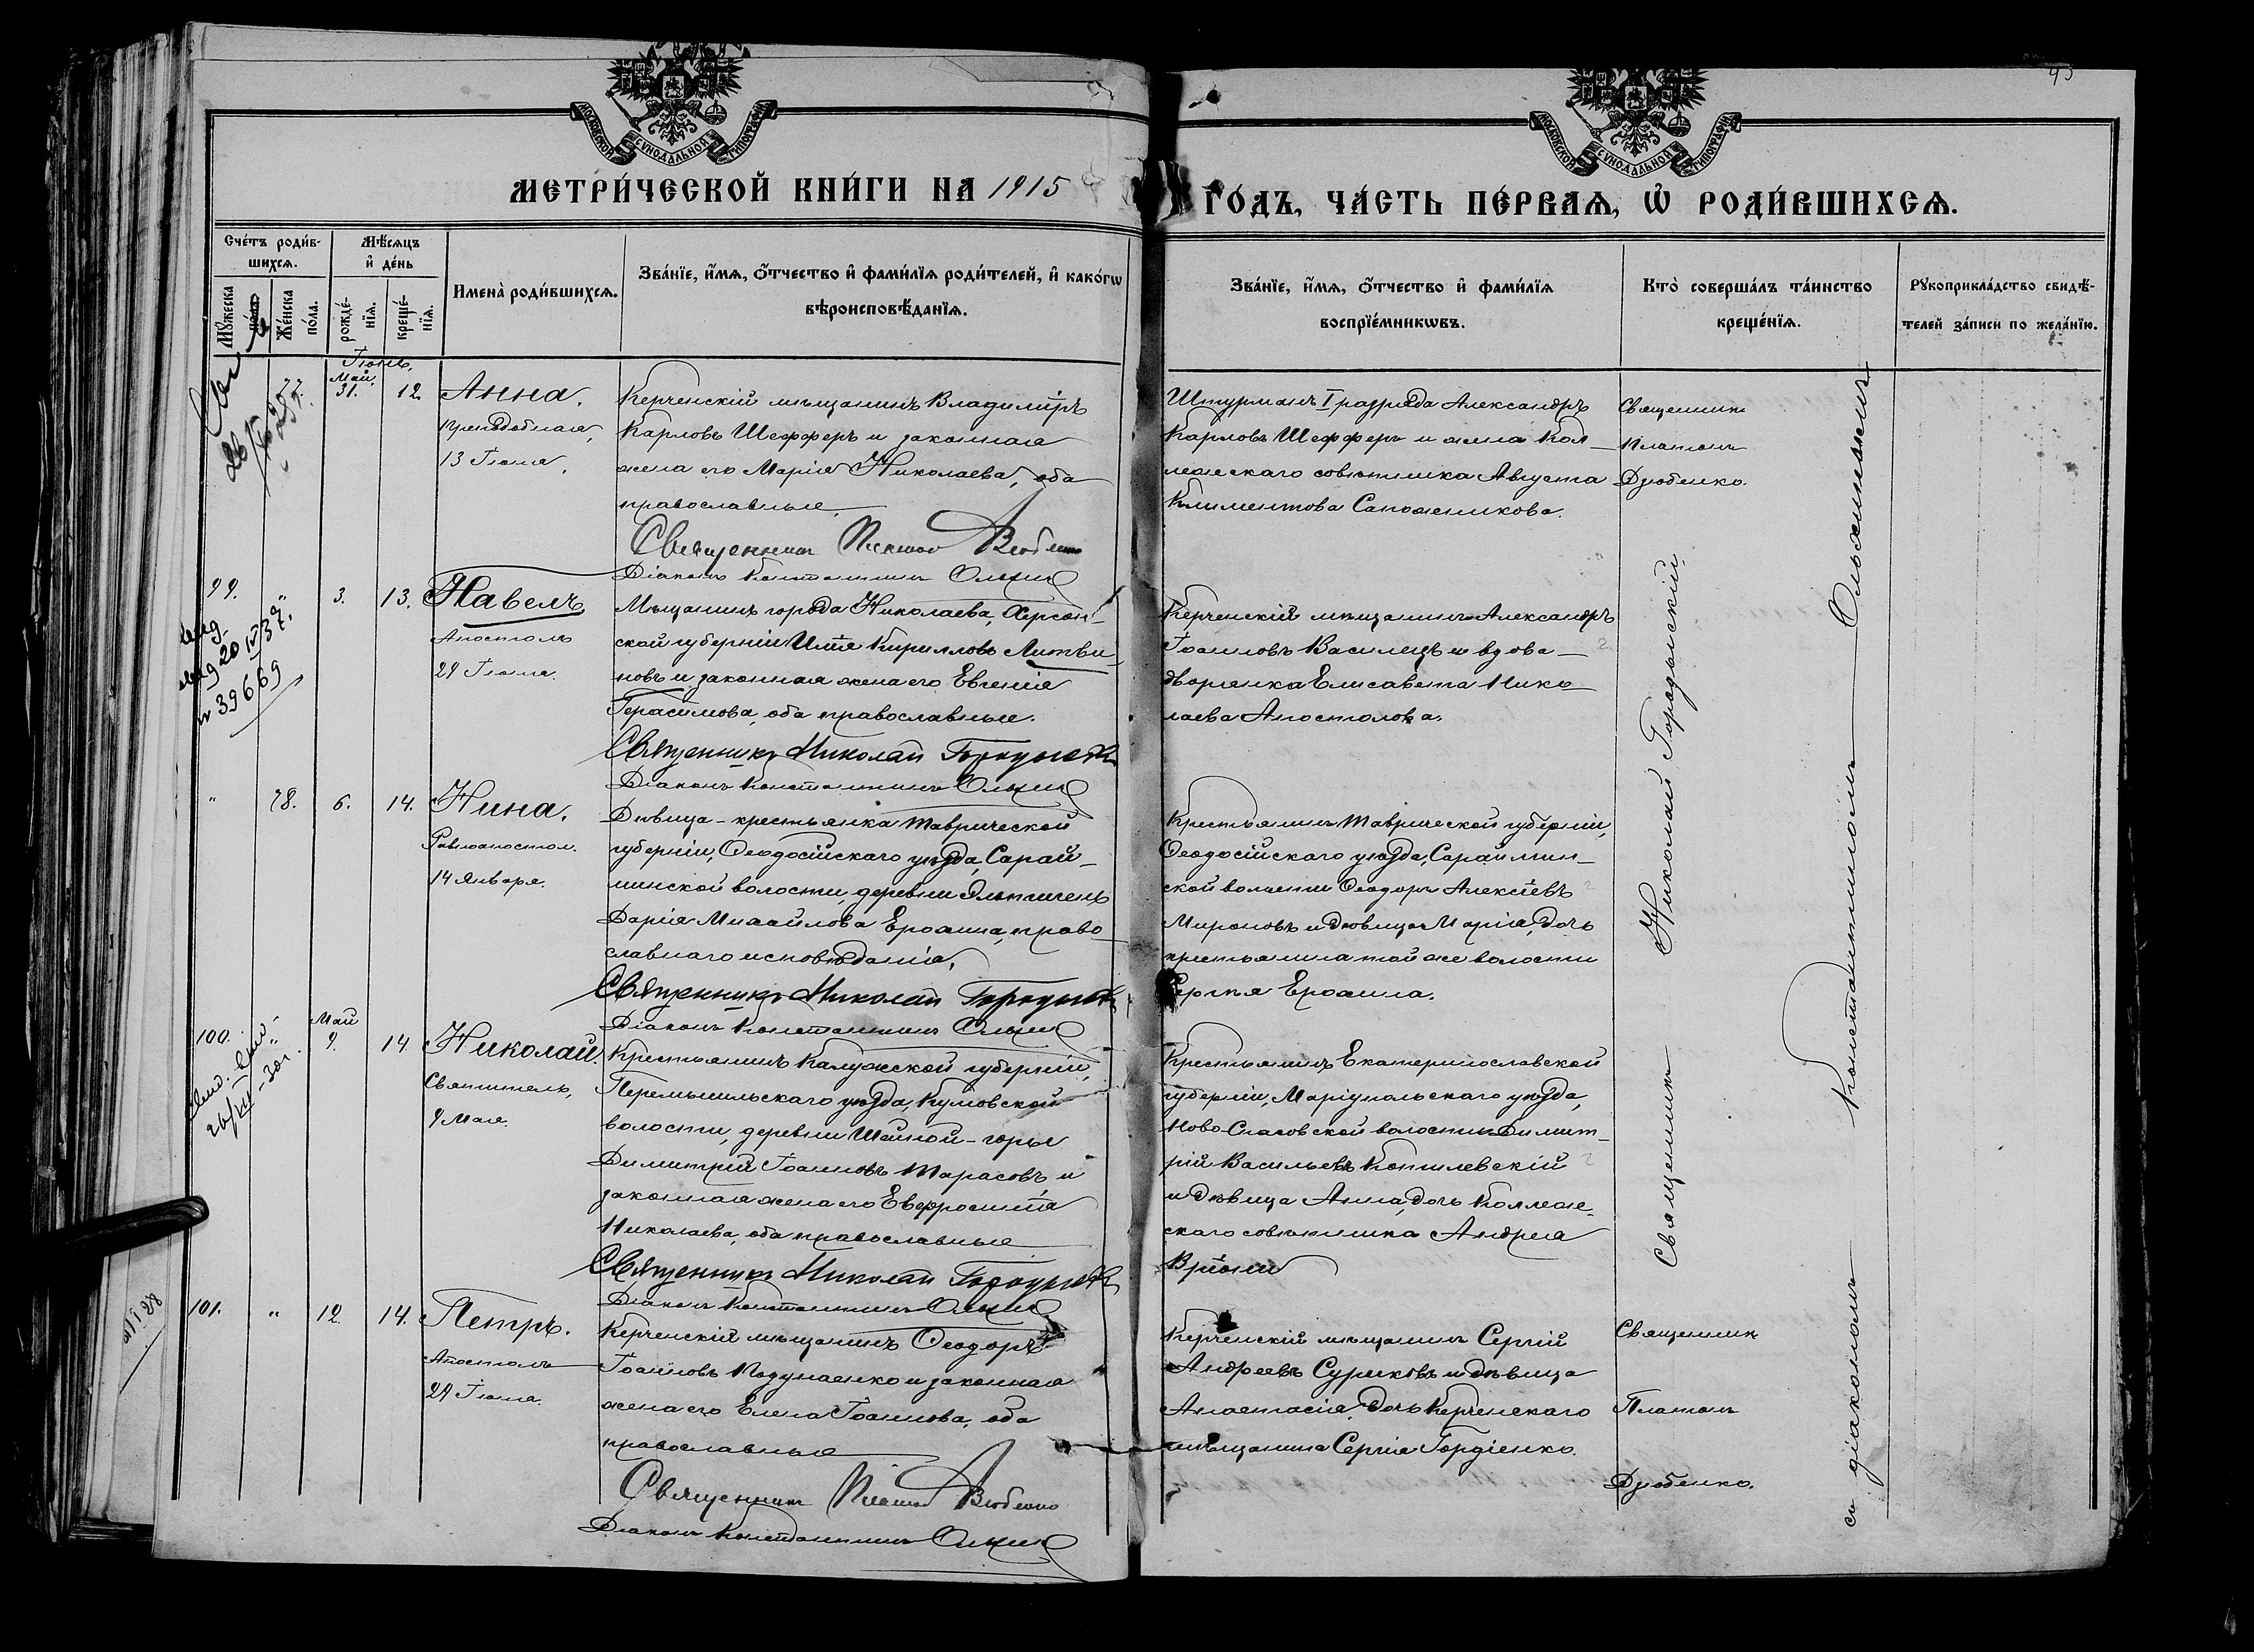 95
МОСКОВСКОЙ СѴНОДАЛЬНОЙ ТИПОГРАФІИ
МОСКОВСКОЙ СѴНОДАЛЬНОЙ ТИПОГРАФІИ
МЕТРИ́ЧЕСКОЙ КНИ́ГИ НА 1915
ГО́ДЪ, ЧА́СТЬ ПЕ́РВАѦ, Ѽ РОДИ́ВШИХСѦ.
Сче́тъ роди́в-
шихсѧ.
Мꙋ́жеска
по́ла.
Же́нска
по́ла.
Мѣ́сѧцъ
и҆ де́нь
рожде́-
нїѧ.
креще́-
нїѧ.
Имена̀ роди́вшихсѧ.
Зва́нїе, и҆́мѧ, ѻ҆́тчество и҆ фами́лїѧ роди́телей, и҆ како́гѡ
вѣроисповѣ́данїѧ.
Зва́нїе, и҆́мѧ, ѻ҆́тчество и҆ фами́лїѧ
воспрїе́мникѡвъ.
Кто̀ соверша́лъ та́инство
креще́нїѧ.
Рꙋкоприкла́дство свидѣ́-
телей за́писи по жела́нїю.
Іюнь.
77.
Май.
31.
12.
Анна.
преподобная,
13 Іюня.
Керченскій мѣщанинъ Владиміръ
Карловъ Шефферъ и законная
жена его Марія Николаева, оба
православные.
Священникъ Платонъ Дзюбенко
Діаконъ Константинъ Ольж
Штурманъ I разряда Александръ
Карловъ Шефферъ и жена Кол-
лежскаго совѣтника Августа
Климентова Сапожникова.
Священникъ
Платонъ
Дзюбенко.
99.
"
3.
13.
Павелъ
Апостолъ
29 Іюня.
20 IV 37.
№ 39669
Мѣщанинъ города Николаева, Херсон-
ской губерніи Илія Кирилловъ Литви-
новъ и законная жена его Евгенія
Герасимова, оба православные.
Священникъ Николай Городыскій
Діаконъ Константинъ Ольж
Керченскій мѣщанинъ Александръ
Іоанновъ Василецъ и вдова
дворянка Елисавета Нико-
лаева Апостолова.
"
78.
6.
14.
Нина.
Равноапостол.
14 Января.
Дѣвица-крестьянка Таврической
губерніи, Ѳеодосійскаго уѣзда, Сарай-
минской волости, деревни
Дарія Михайлова Ерохина, право-
славнаго исповѣданія.
Священникъ Николай Городыскій
Діаконъ Константинъ Ольж
Крестьянинъ Таврической губерніи,
Ѳеодосійскаго уѣзда, Сараймин-
ской волости Ѳеодоръ Алексіевъ
Мироновъ и дѣвица Марія, дочь
крестьянина той же волости
Сергѣя Ерохина.
Священникъ Николай Городыскій.
100.
"
Май
9.
14.
Николай.
Святитель,
9 Мая.
Крестьянинъ Калужской губерніи,
Перемышльскаго уѣзда, Кумовской
волости, деревни Шаиной-горы
Димитрій Іоанновъ Тарасовъ и
законная жена его Евфросинія
Николаева, оба православные
Священникъ Николай Городыскій
Діаконъ Константинъ Ольж
Крестьянинъ Екатеринославской
губерніи, Маріупольскаго уѣзда,
Ново-Спасовской волости Димит-
рій Васильевъ Копилевскій
и дѣвица Анна, дочь Коллеж-
скаго совѣтника Андрея
Вріони
101.
"
12.
14.
Петръ.
Апостолъ
29 Іюня.
Керченскій мѣщанинъ Ѳеодоръ
Іоанновъ Подунаенко и законная
жена его Елена Іоаннова, оба
православные
Священникъ Платонъ Дзюбенко
Діаконъ Константинъ Ольж
Керченскій мѣщанинъ Сергій
Андреевъ Суриковъ и дѣвица
Анастасія, дочь Керченскаго
мѣщанина Сергія Гордіенко.
Священникъ
Платонъ
Дзюбенко.
съ діакономъ Константиномъ Ольжинымъ